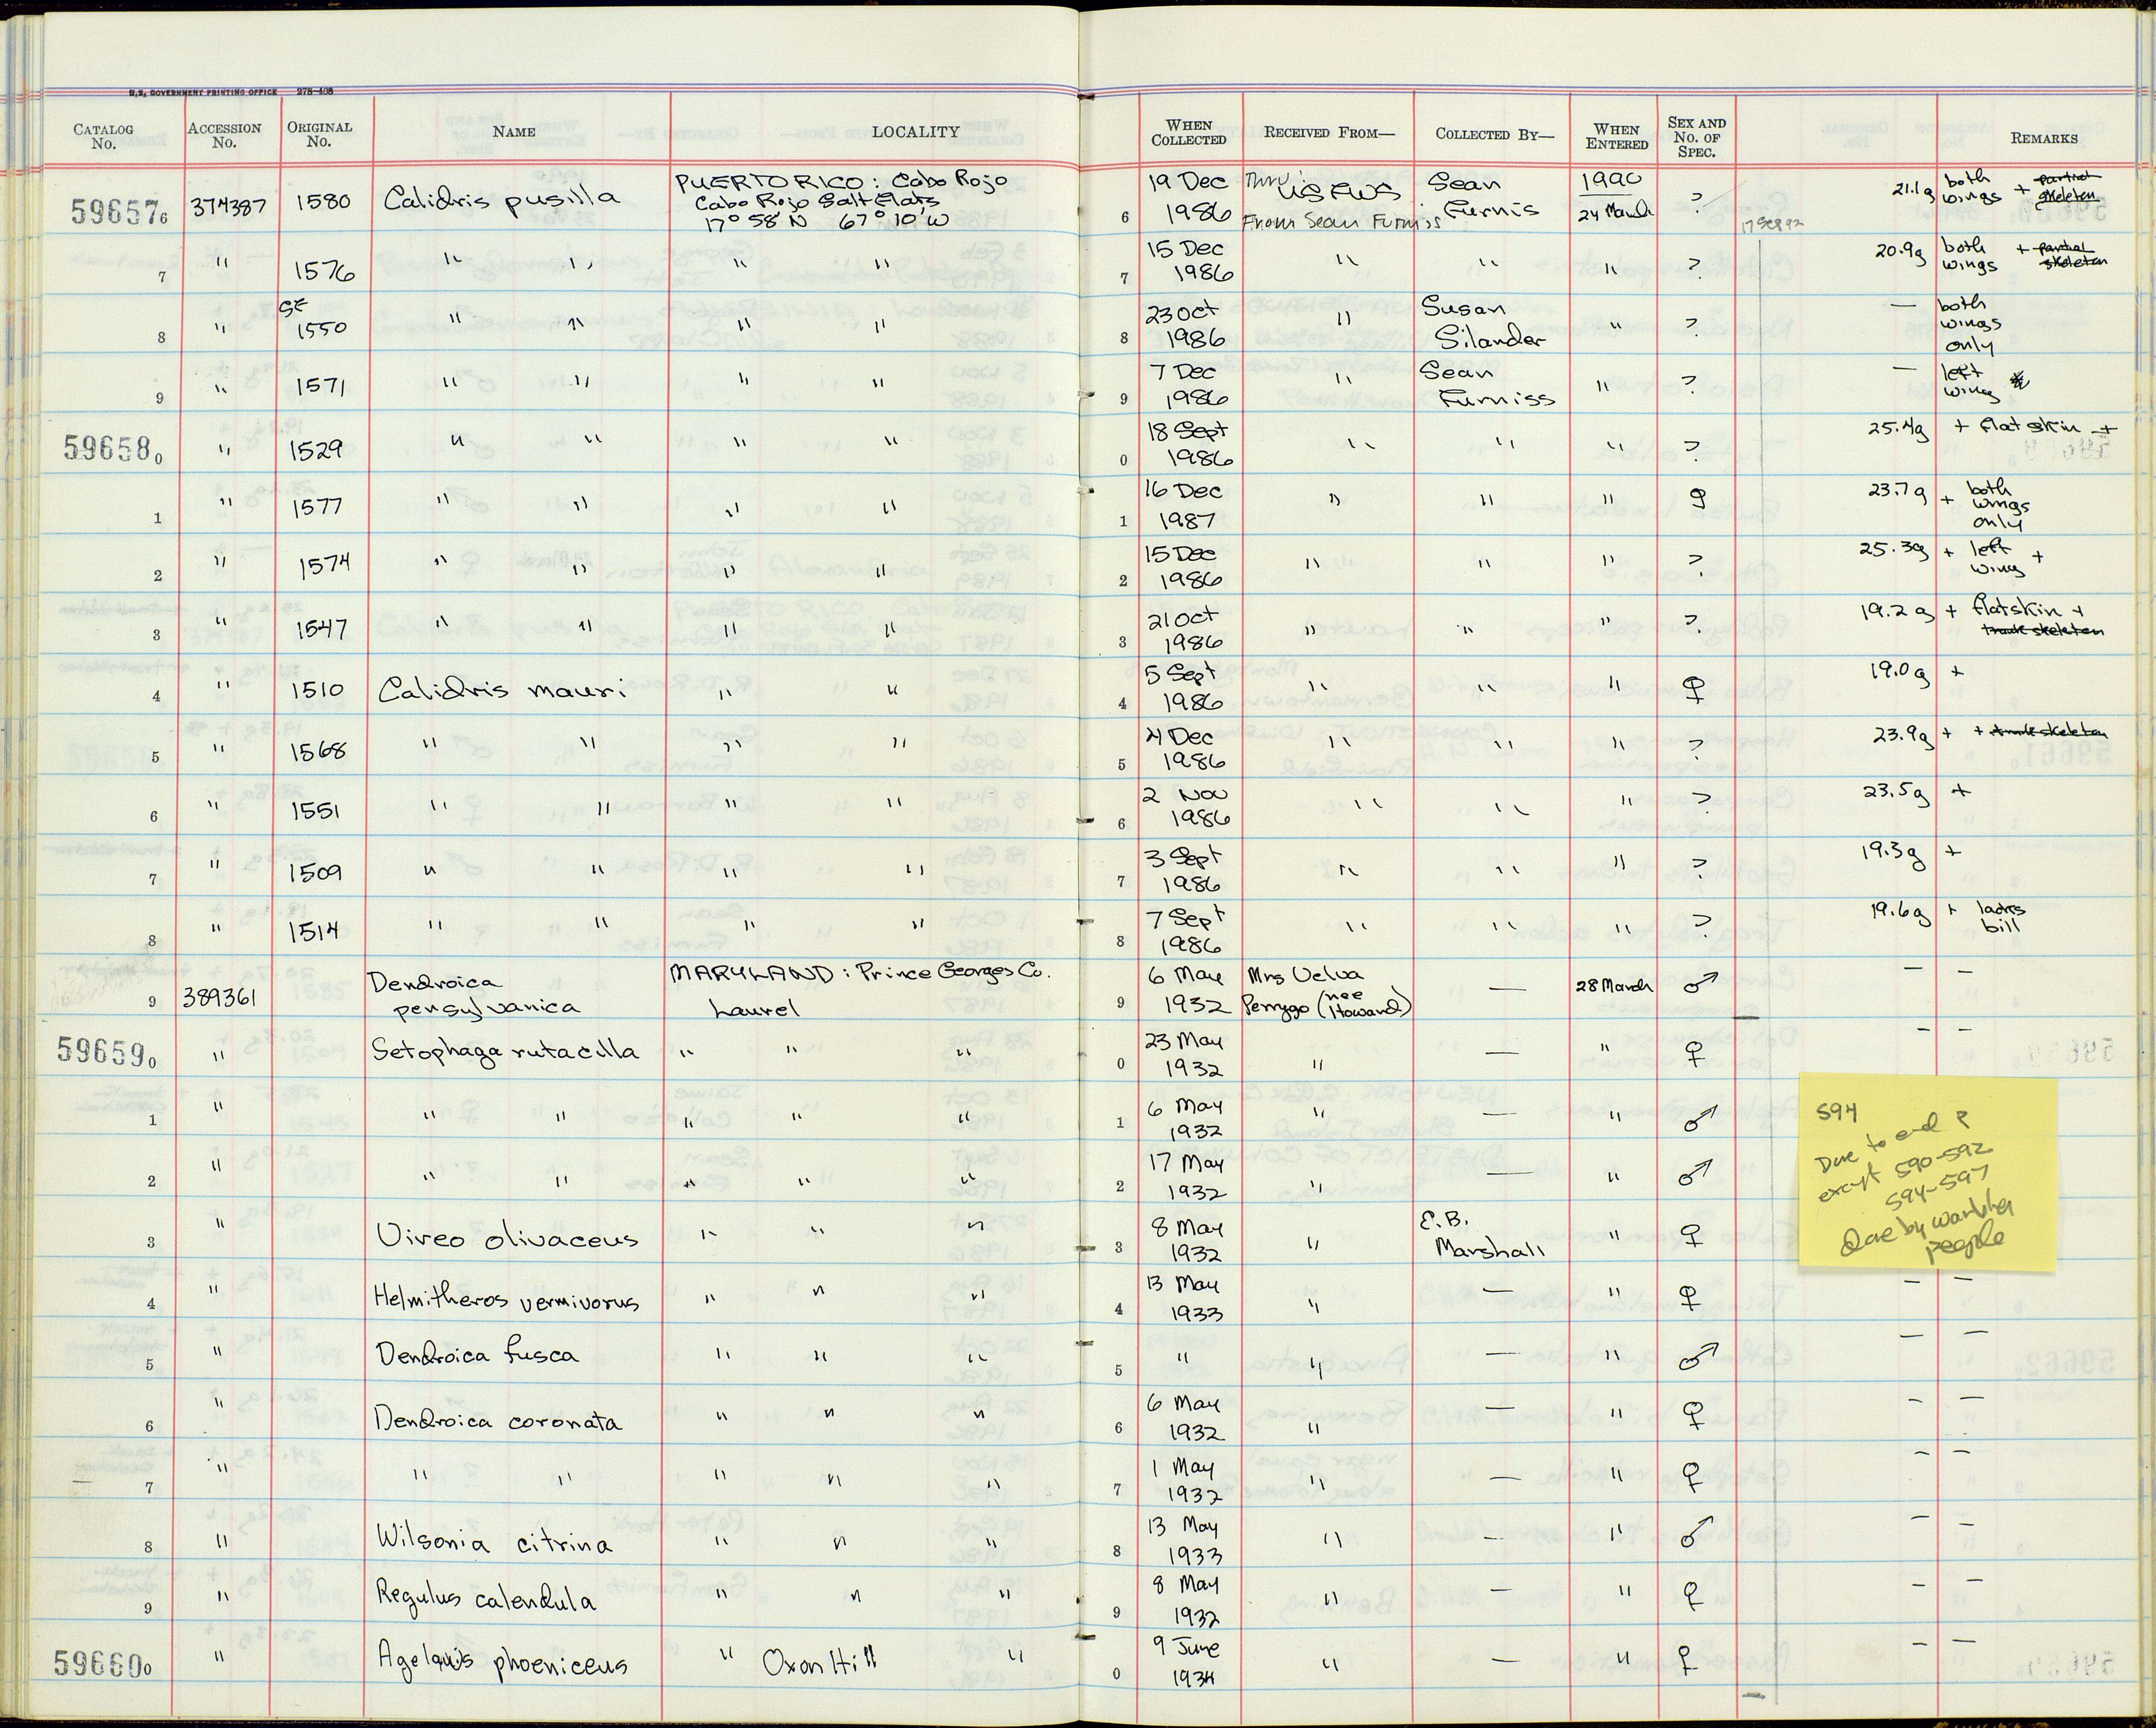 U.S. GOVERNMENT PRINTING OFFICE 278-408
CATALOG No. ACCESSION No. ORIGINAL No. NAME LOCALITY WHEN COLLECTED RECEIVED FROM— COLLECTED BY— WHEN ENTERED SEX AND No. OF SPEC. REMARKS
596576 374387 1580 Calidris pusilla PUERTO RICO: Cabo Rojo
Cabo Rojo Salt Flats
17° 58' N 67° 10' W
6 19 Dec 1986 Thru: USFWS From Sean Furniss Sean Furnis 1990 24 March ? 17 Sep 92 21.1g both wings + partial skeleton
7 " 1576 " " " " 7 15 Dec 1986 " " " ? 20.9g both wings + partial skeleton
8 " SF 1550 " " " " 8 23 Oct 1986 " Susan Silander " ? — both wings only
9 " 1571 " " " " 9 7 Dec 1986 " Sean Furniss " ? — left wing
596580 " 1529 " " " " 0 18 Sept 1986 " " " ? 25.4g + flat skin +
1 " 1577 " " " " 1 16 Dec 1987 " " " ♀ 23.7g + both wings only
2 " 1574 " " " " 2 15 Dec 1986 " " " ? 25.3g + left wing +
3 " 1547 " " " " 3 21 Oct 1986 " " " ? 19.2g + flatskin + trunk skeleton
4 " 1510 Calidris mauri " " 4 5 Sept 1986 " " " ♀ 19.0g +
5 " 1568 " " " " 5 4 Dec 1986 " " " ? 23.9g + + trunk skeleton
6 " 1551 " " " " 6 2 Nov 1986 " " " ? 23.5g +
7 " 1509 " " " " 7 3 Sept 1986 " " " ? 19.3g +
8 " 1514 " " " " 8 7 Sept 1986 " " " ? 19.6g + lacks bill
9 389361 Dendroica pensylvanica MARYLAND: Prince Georges Co. Laurel 9 6 May 1932 Mrs Velva Perrygo (nee Howard) — 28 March ♂ — —
596590 " Setophaga rutacilla " " " 0 23 May 1932 " — " ♀ — —
1 " " " " " " 1 6 May 1932 " — " ♂
2 " " " " " " 2 17 May 1932 " — " ♂
3 " Vireo olivaceus " " " 3 8 May 1932 " E.B. Marshall " ♀
4 " Helmitheros vermivorus " " " 4 13 May 1933 " — " ♀ — —
5 " Dendroica fusca " " " 5 " " — " ♂ — —
6 " Dendroica coronata " " " 6 6 May 1932 " — " ♀ — —
7 " " " " " " 7 1 May 1932 " — " ♀ — —
8 " Wilsonia citrina " " " 8 13 May 1933 " — " ♂ — —
9 " Regulus calendula " " " 9 8 May 1932 " — " ♀ — —
596600 " Agelaius phoeniceus " Oxon Hill " 0 9 June 1934 " — " ♀ — —
594
to end
except 590-592
594-597
by warbler
people